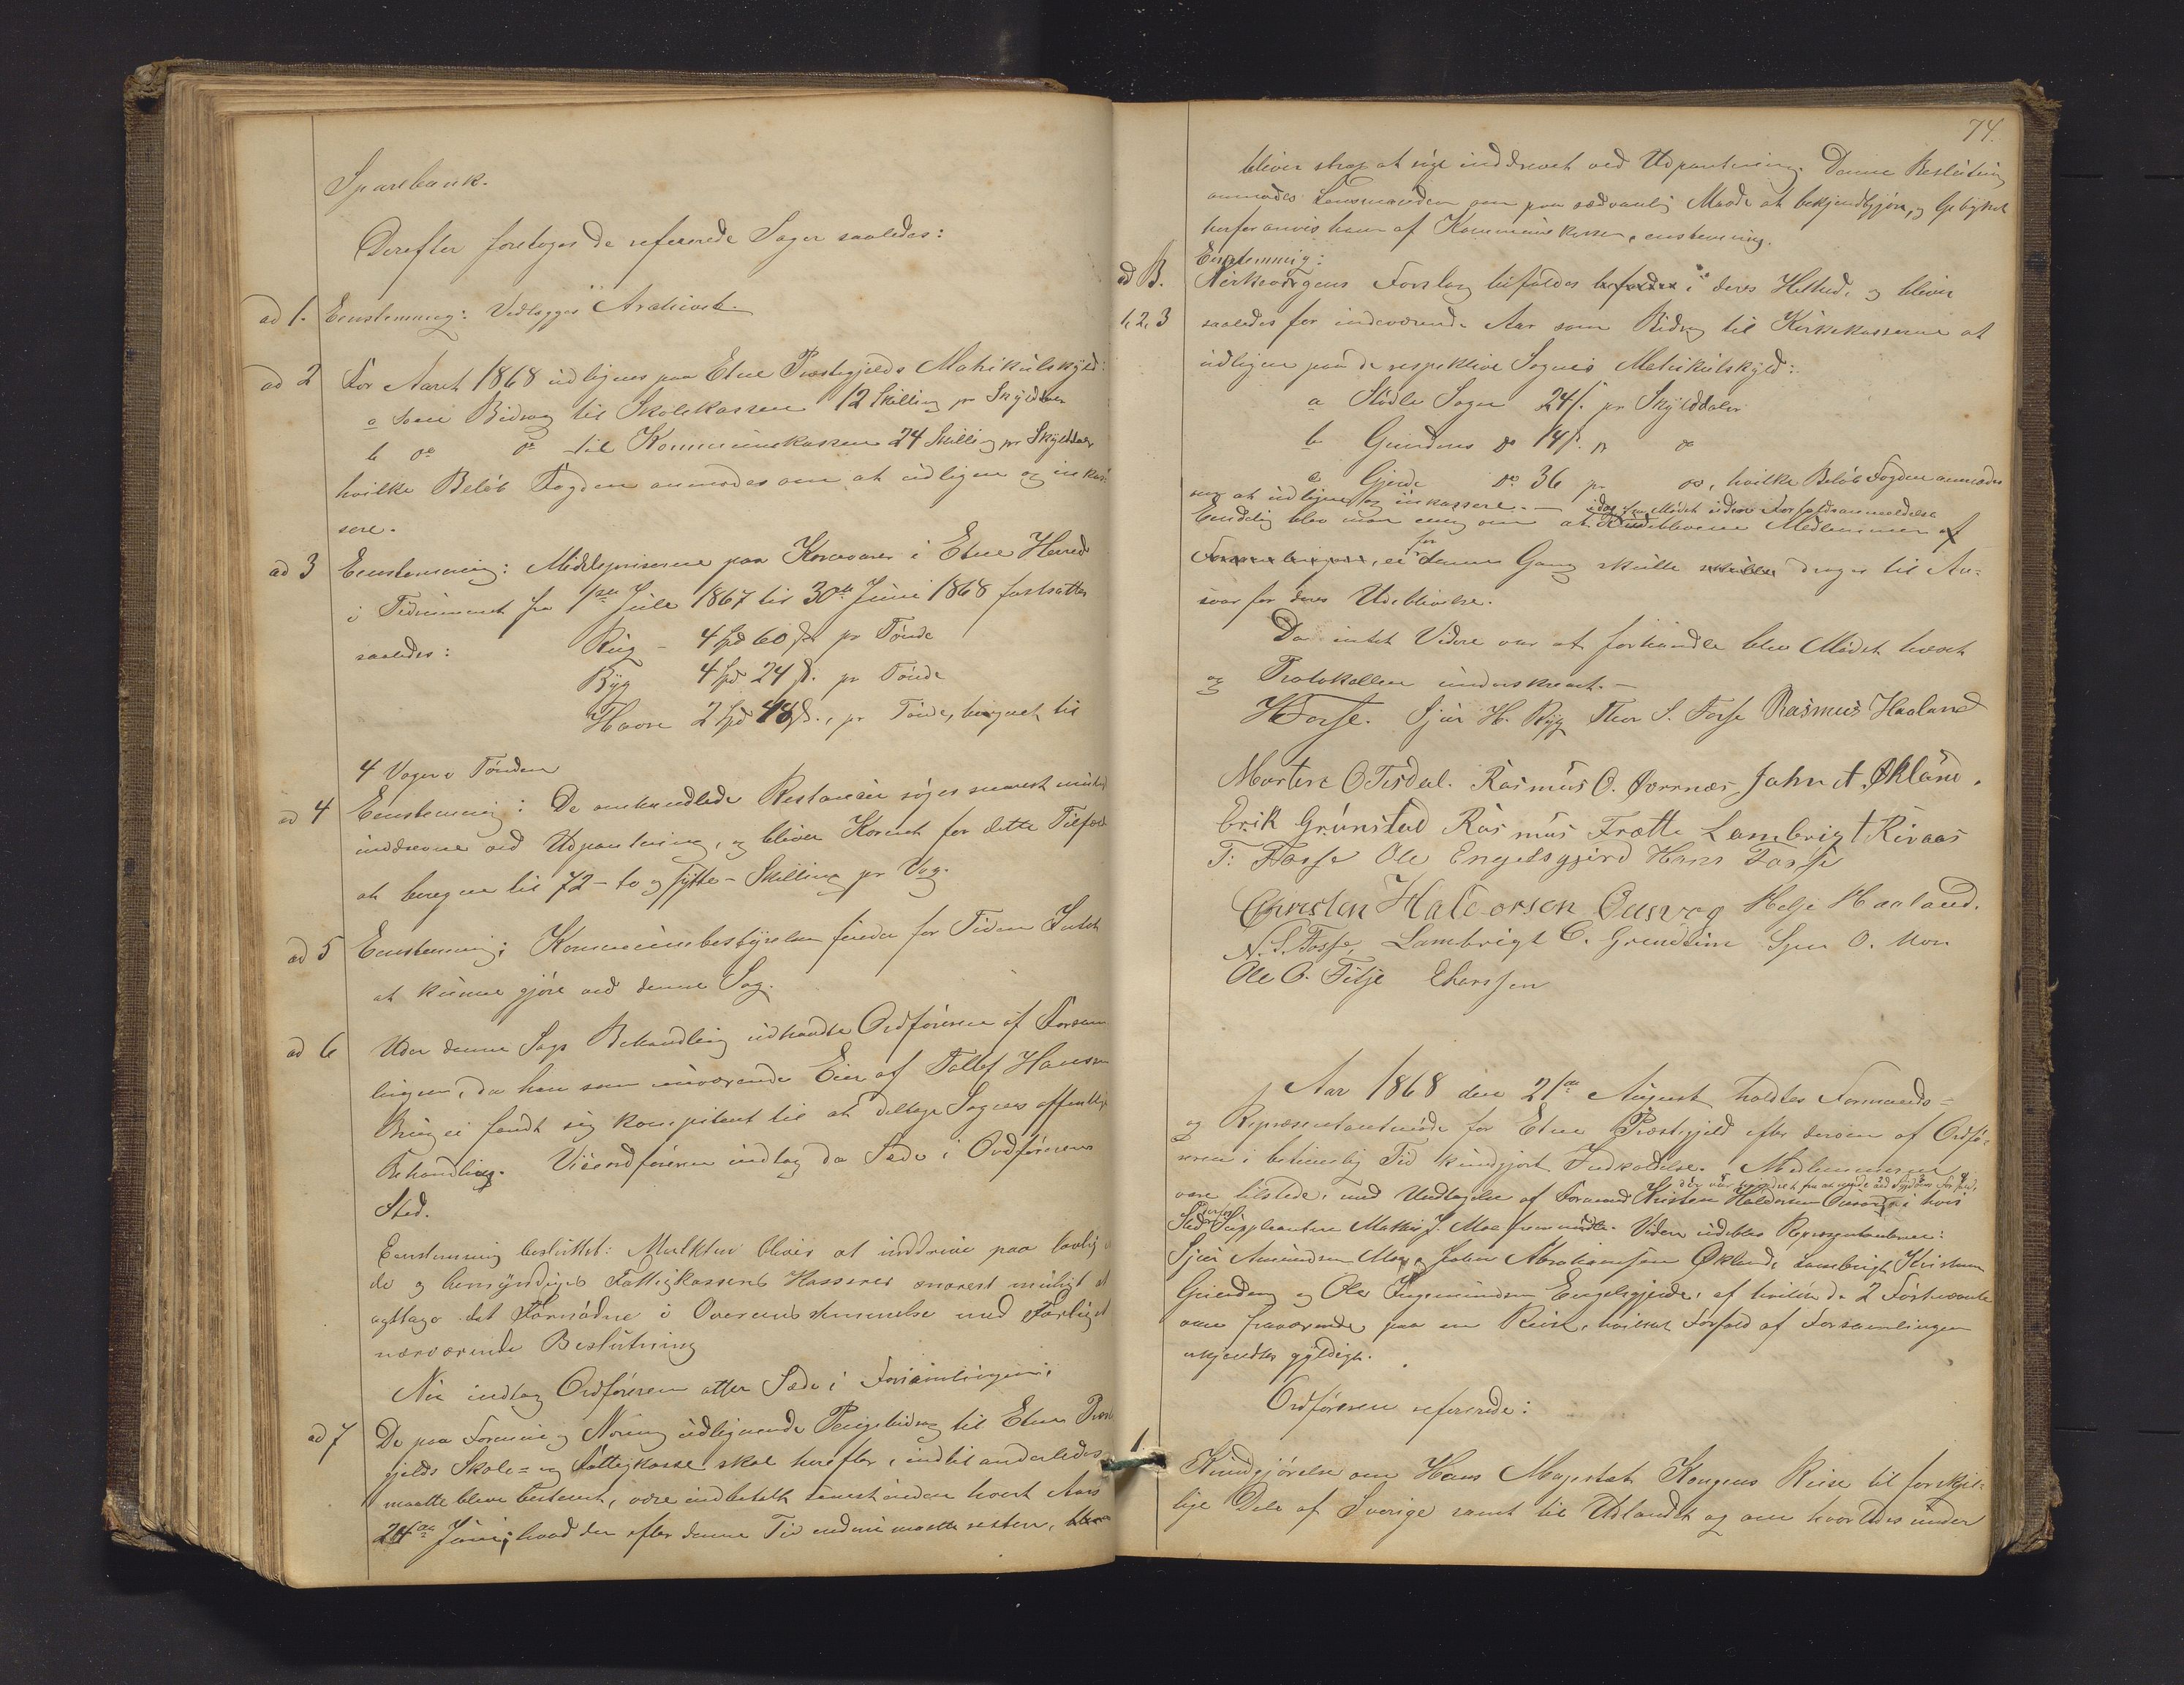 Sparebank.
Derefter foretoges de refererede Sager saaledes:
ad 1. Eenstemmig: Vedlægges Archivet.
ad 2 For Aaret 1868 udlignes paa Etne Præstegjelds Matrikulskyld:
a som Bidrag til Skolekassen 12 Skilling pr Skylddaler
b do do til Kommunekassen 24 Skilling pr Skylddaler
hvilke Beløb Fogden anmodes om at udligne og inkas-
sere.
ad 3 Eenstemmig: Middelpriserne paa Kornvarer i Etne Herred
i Tidsrummet fra 1ste Juli 1867 til 30te Juni 1868 fastsættes
saaledes: Rug - 4 Spd 60 s pr Tønde
Byg 4 Spd 24 s. pr Tønde
Havre 2 Spd 48 s., pr Tønde, beregnet til
4 Voger i Tønden
ad 4 Eenstemmig: De omhandlede Restancer søges snarest muligt
inddrevne ved Udpantning, og bliver Kornet for dette Tilfælde
at beregne til 72 - to og sytti - Skilling pr Vog.
ad 5 Eenstemmig: Kommunebestyrelsen finder for Tiden Intet
at kunne gjøre ved denne Sag.
ad 6 Under denne Sags Behandling udtraadte Ordføreren af Forsam
lingen, da han som nuværende Eier af Tollef Hansen
Brug ei fandt sig kompetent til at deltage Sagens offentlige
Behandling. Viseordføreren indtog da Sæde i Ordførerens
Sted.
Eenstemmig besluttet: Mulkten bliver at inddrive paa lovlig
de og bemyndiges Fattigkassens Kasserer snarest muligt at
agttage det Fornødne i Overeensstemmelse med
nærværende Beslutning
Nu indtog Ordføreren atter Sæde i Forsamlingen:
ad 7 De paa Formue og Næring udlignende Pengebidrag til Etne Præste
gjelds Skole- og Fattigkasse skal herefter, indtil anderledes
maatte blive bestemt, være indbetalt senest inden hvert Aars
24de Juni; hvad der efter denne Tid endnu maatte restere,
74.
bliver strax at søge inddrevet ved Udpantning. Denne Beslutning
anmodes Lensmanden om paa sædvanlig Maade at bekjendtgjøre, og Gebyhret
herfor anvises ham af Kommunekassen.
Eenstemmig:
ad B. Forslag tilfaldes i deres Helhed, og bliver
1, 2, 3 saaledes for indeværende Aar som Bidrag til Kirkekasserne at
udligne paa de respektive Sognes Matrikulskyld:
a Stødle Sogn 24 s. pr Skylddaler
b Grindems do 14 s. pr do
c Gjerde do 36 pr do, hvilke Beløb Fogden anmodes
om at udligne og inkassere. -
idag fra Mødet uden Forfaldsanmeldelse
Eendelig blev man enig om at udeblevne Medlemmer af
Forsamlingen, ei for denne Gang skulle skulle drages til An-
svar for deres Udeblivelse.
Da intet Videre var at forhandle blev Mødet hævet
og Protokollen underskrevet. -
H Fosse. Sjur H. Ryg Thor S. Fosse Rasmus Haaland
Morten O Tesdal. Rasmus O. Børrnæs John A. Økland.
Erik Grønstad Rasmus Frætte Lambrigt Rivaas
T: Fosse Ole Engelsgjerd Hans Fosse
Christen Halvorsen Ousvog Helje Haaland.
N. S. Fosse, Lambrigt C. Grendeim Sjur O. Moe
Ole O. Fitje
Aar 1868 den 21de August holdtes Formands-
og Repræsentantmøde for Etne Præstegjeld efter derom af Ordfø-
reren i betimelig Tid kundgjort Indkaldelse. Medlemmerne
der var hindret fra at møde ved Sygdoms Forfald,
vare tilstede, med Undtagelse af Formand Kristen Halvorsen Ousvog i hvis
Sted Suppleanten Mathis J. Moe fremmødte. Videre udeblev Repræsentanterne:
Sjur Amundsen Moe, Johan Abrahamsen Økland, Lambrigt Kristensen
Grindem og Ole Ingemundsen Engelsgjerde, af hvilke de 2 Førstnævnte
vare fraværende paa en Reise, hvilket Forfald af Forsamlingen
erkjendtes gyldigt.
Ordføreren refererede:
1. Kundgjørelse om Hans Majestæt Kongens Reise til forskjel-
lige Dele af Sverige samt til Udlandet og om hvorledes under